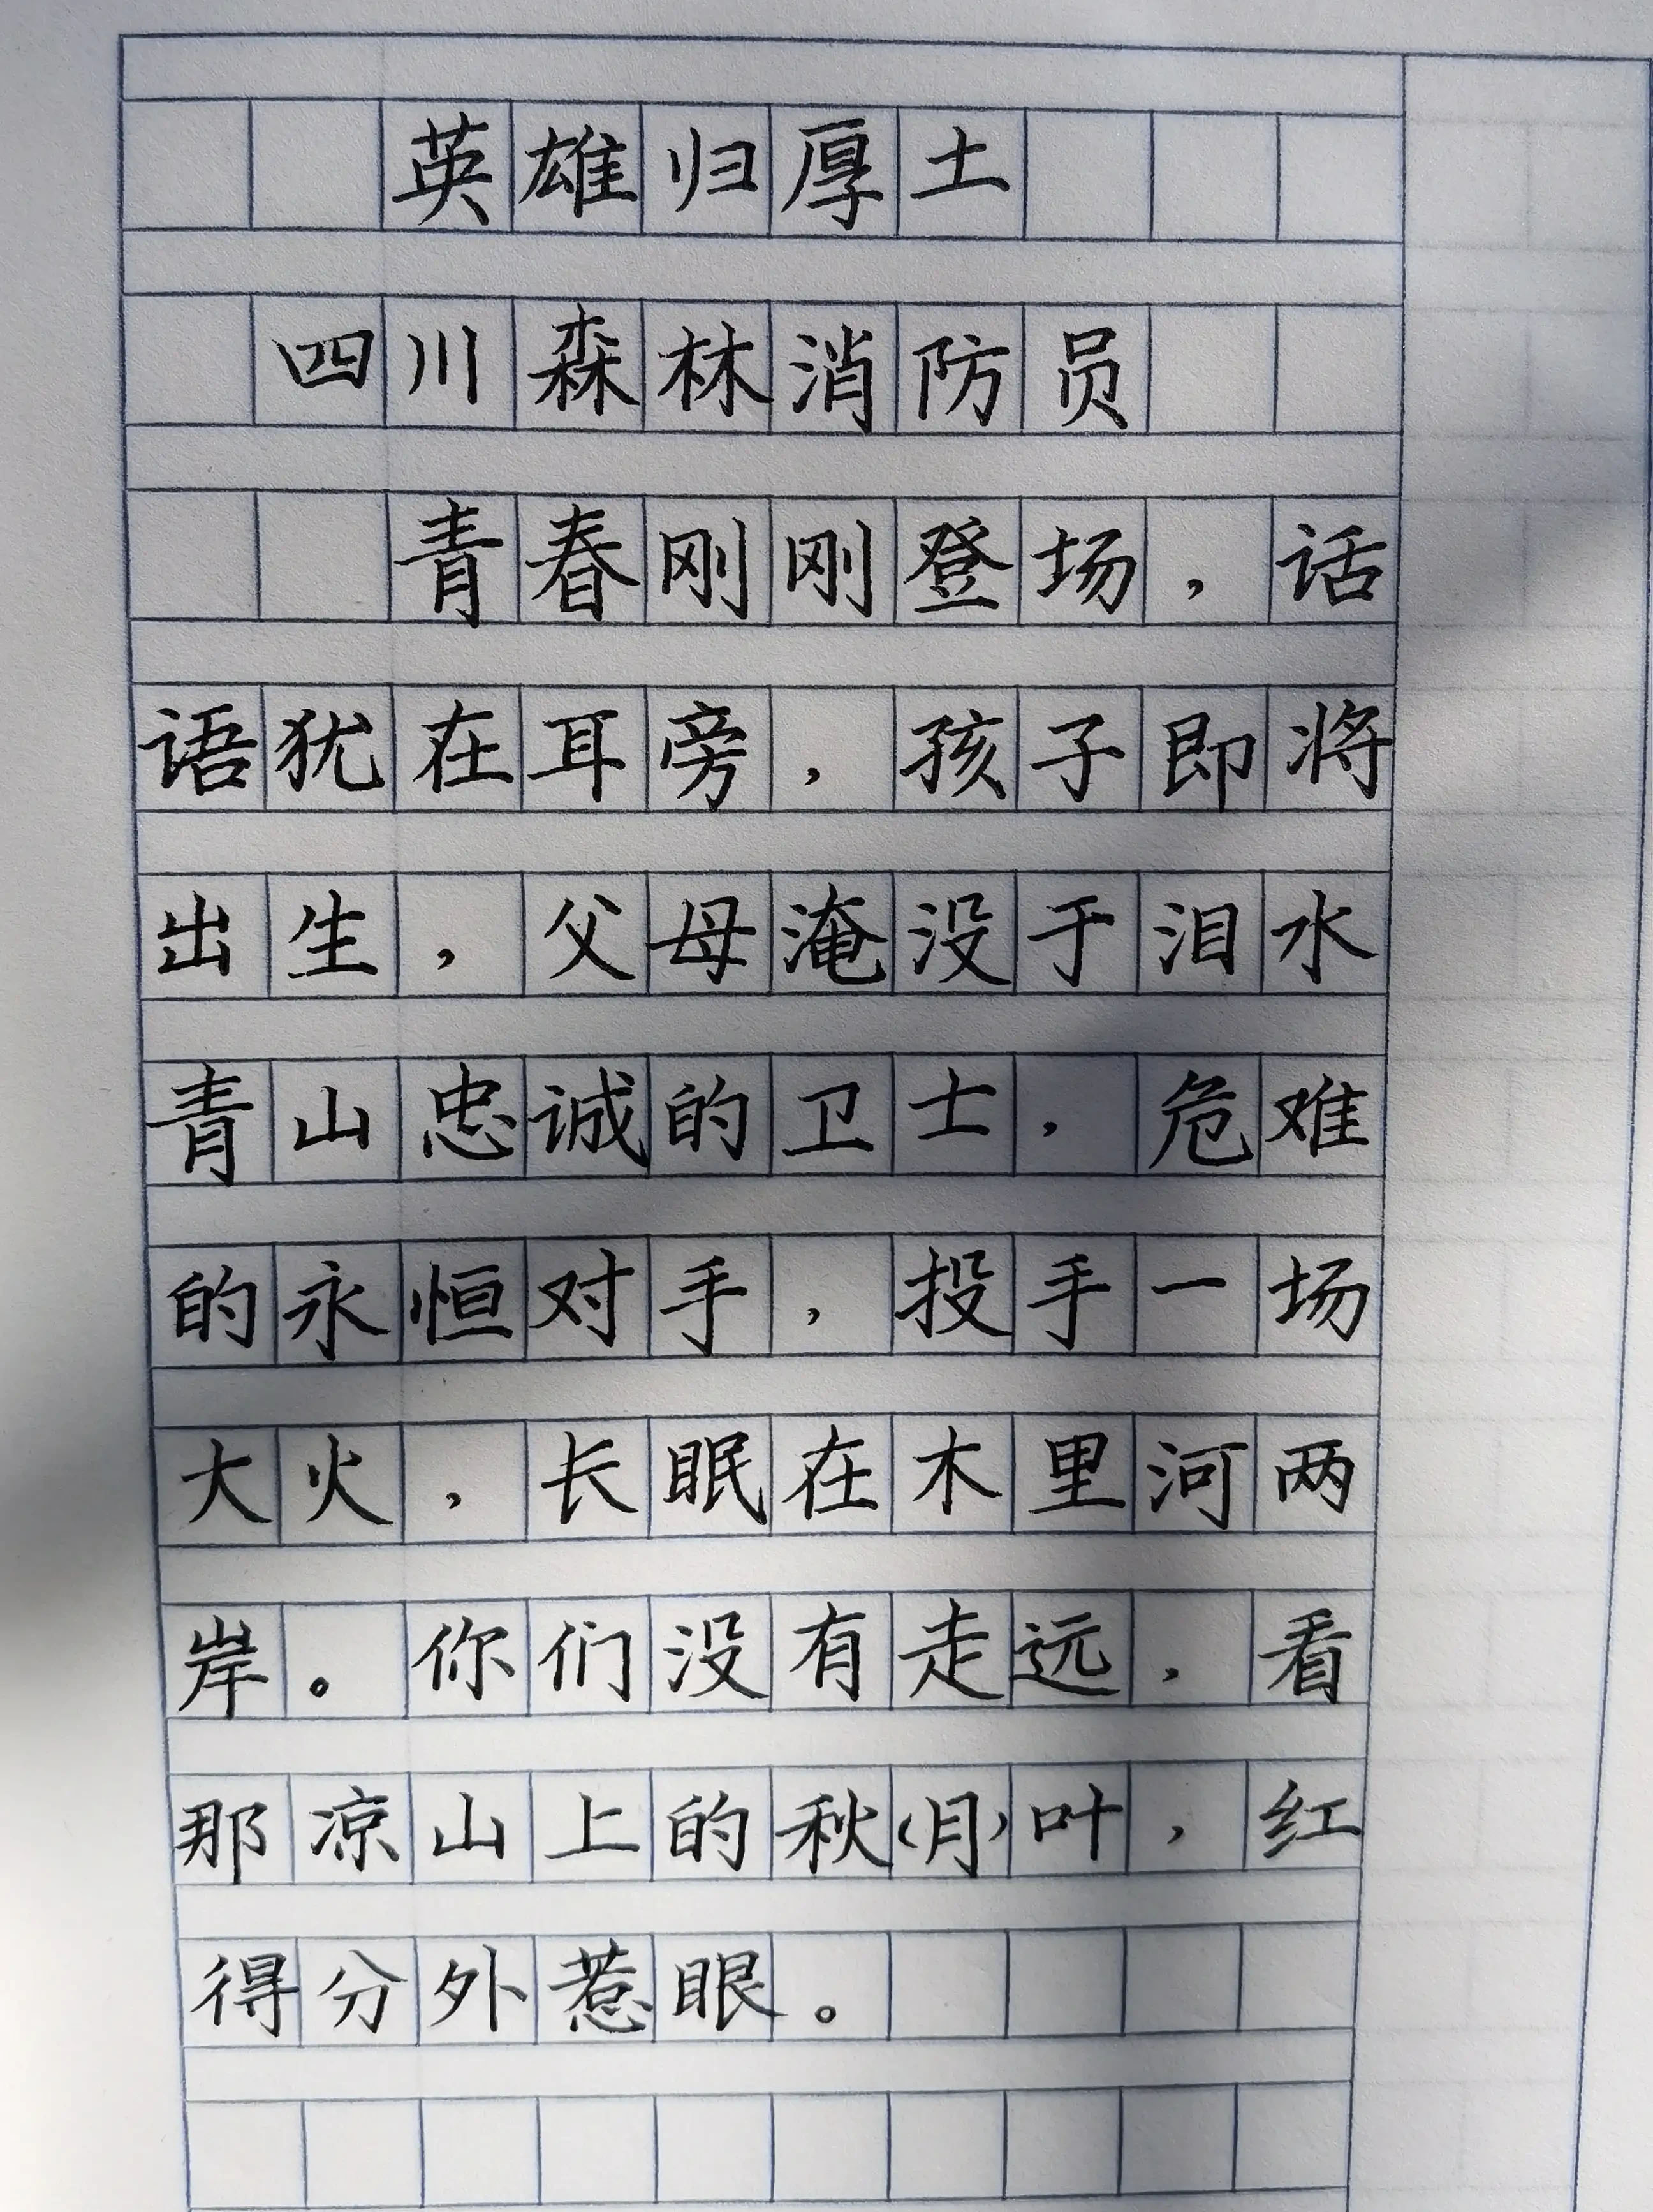 英雄归厚土
四川森林消防员
青春刚刚登场，话
语犹在耳旁，孩子即将
出生，父母淹没于泪水
青山忠诚的卫士，危难
的永恒对手，投手一场
大火，长眠在木里河两
岸。你们没有走远，看
那凉山上的秋（月）叶，红
得分外惹眼。